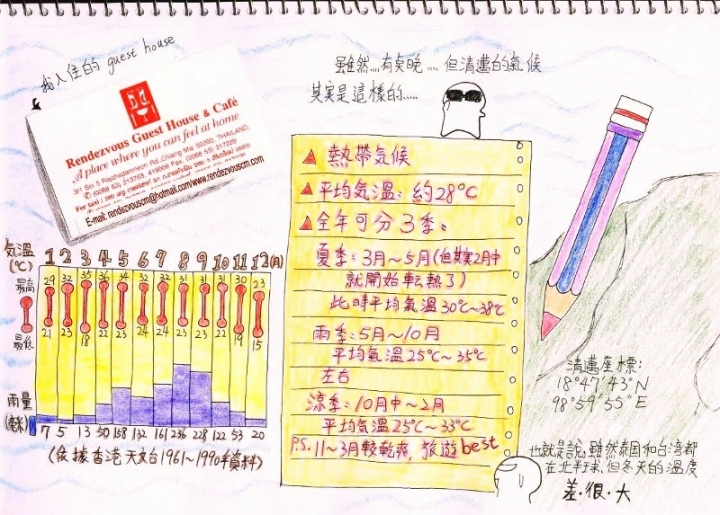 我入住的 guest house
Rendezvous Guest House & Café
A place where you can feel at home
3/1 Soi 5 Rachadamneon Rd.,Chiang Mai 50200, THAILAND.
E-mail: rendezvouscm@hotmail.com/www.rendezvouscm.com
雖然...有點晚.... 但清邁的氣候
其實是這樣的.....
▲ 熱帶氣候
▲ 平均氣溫：約28°C
▲ 全年可分3季：
夏季：3月～5月(但其實2月中
就開始転熱了)
此時平均氣溫30°C～38°C
雨季：5月～10月
平均氣溫25°C～35°C
左右
涼季：10月中～2月
平均氣溫25°C～33°C
P.S. 11～3月較乾爽，旅遊best
氣溫 1 2 3 4 5 6 7 8 9 10 11 12(月)
(°C)
最高 29 32 35 36 34 32 32 31 31 31 30 23
最低 21 23 18 22 23 24 24 23 23 22 19 15
雨量
(毫米) 7 5 13 50 158 132 161 236 228 122 53 20
(依據香港天文台1961～1990年資料)
清邁座標：
18°47'43"N
98°59'55"E
也就是說，雖然泰国和台湾都
在北半球，但冬天的溫度
差·很·大